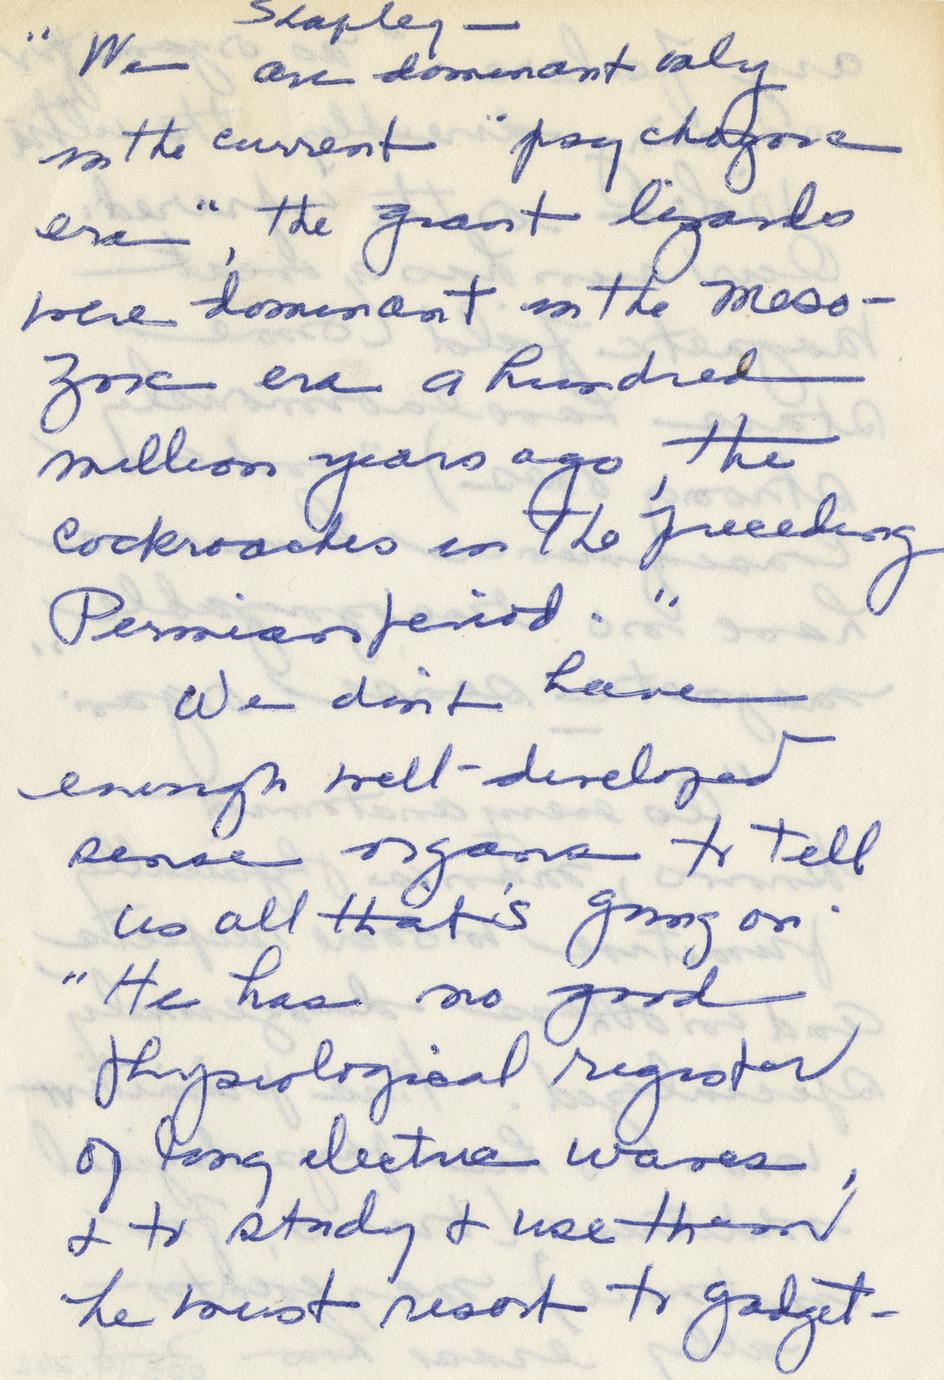 Shapley —
" We are dominant only
in the current "psychozoic
era", the giant lizards
were dominant in the Meso-
zoic era a hundred
million years ago, the
cockroaches in the preceding
Permian period. "
We don't have
enough well-developed
sense organs to tell
us all that's going on.
" He has no good
physiological register
of long electric waves,
& to study & use them
he must resort to gadget-